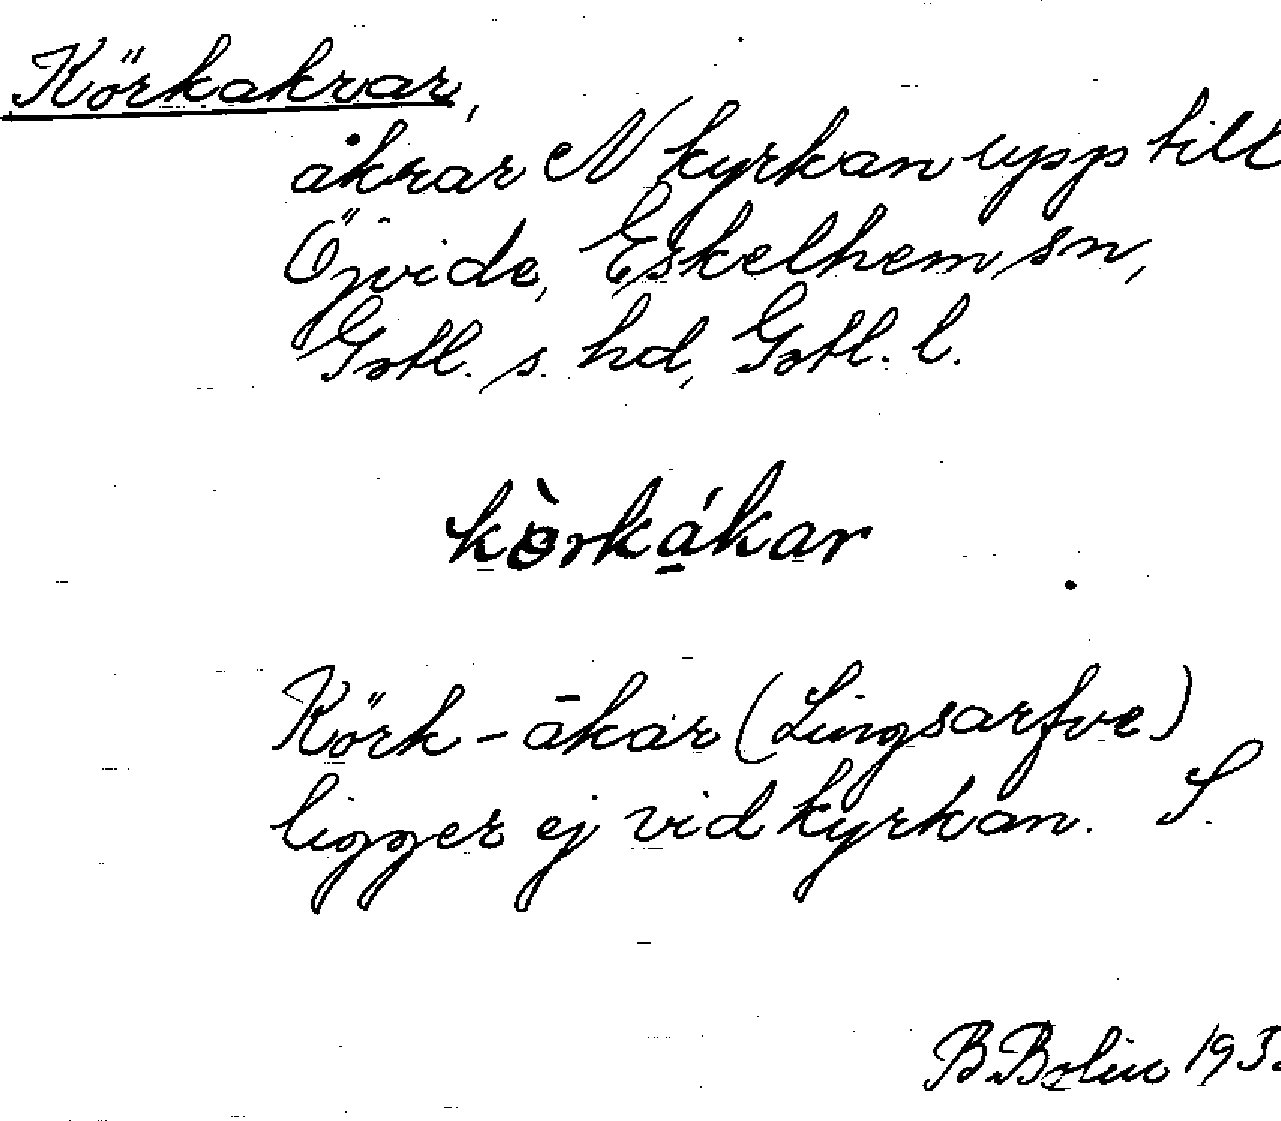 Körkakrar,
åkrar N kyrkan upp till
Öjvide, Eskelhem sn,
Gotl. s. hd, Gotl. l.
kòrkákar
Körk-ākar (Lingsarfve)
ligger ej vid kyrkan. S.
B. Bolin